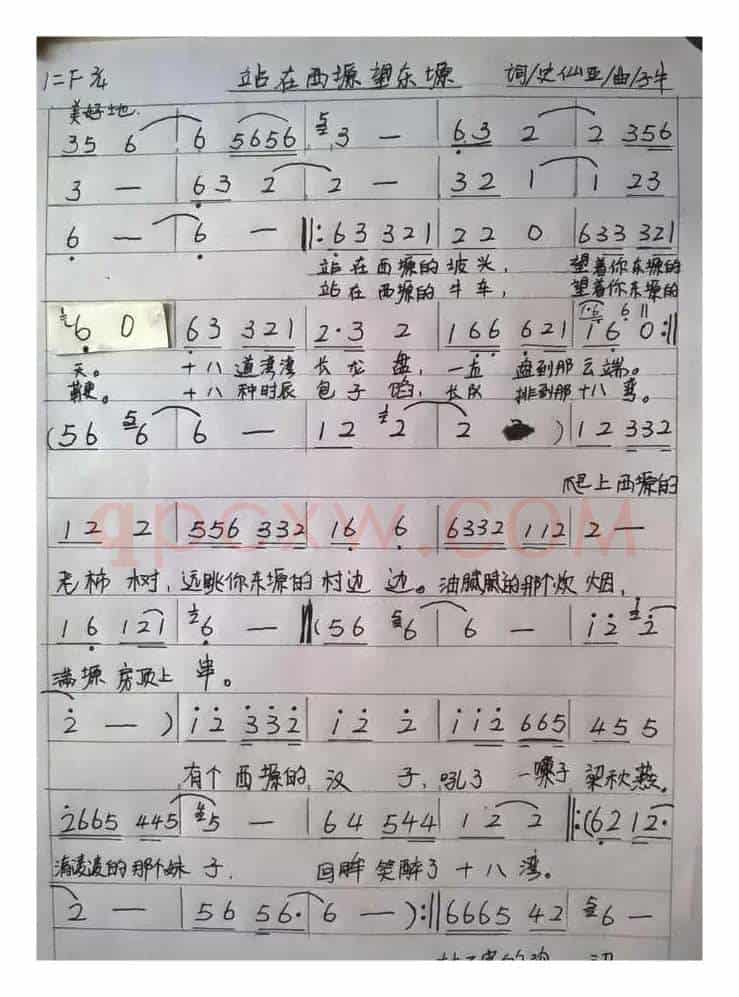 1=F 2/4 站在西塬望东塬 词/史仙亚/曲/子牛
美好地.
35 6 | 6 5656 | 3 — | 63 2 | 2 356
3 — | 63 2 | 2 — | 32 1 | 1 23
6 — | 6 — ‖: 63 321 | 22 0 | 633 321
站在西塬的坡头， 望着你东塬的
站在西塬的牛车， 望着你东塬的
6 0 | 63 321 | 2·3 2 | 166 621 | 16 0 :‖
天。 十八道湾湾长龙盘，一直盘到那云端。
十八种时辰包子馅，长队排到那十八弯。
(56 6 | 6 — | 12 2 | 2 ) | 12 332
爬上西塬的
12 2 | 556 332 | 16 6 | 6332 112 | 2 —
qpcxw.COM
老柿树，远眺你东塬的村边边。油腻腻的那个炊烟，
16 121 | 6 — ‖ (56 6 | 6 — | 12 2
满塬房顶上串。
2 — ) | 12 332 | 12 2 | 112 665 | 45 5
有个西塬的汉子，吼了一嗓子梁秋燕。
2665 445 | 5 — | 64 544 | 12 2 ‖: (62 12·
清凌凌的那个妹子， 回眸笑醉了十八湾。
2 — | 56 56· | 6 — ) :‖ 6665 42 | 6 —